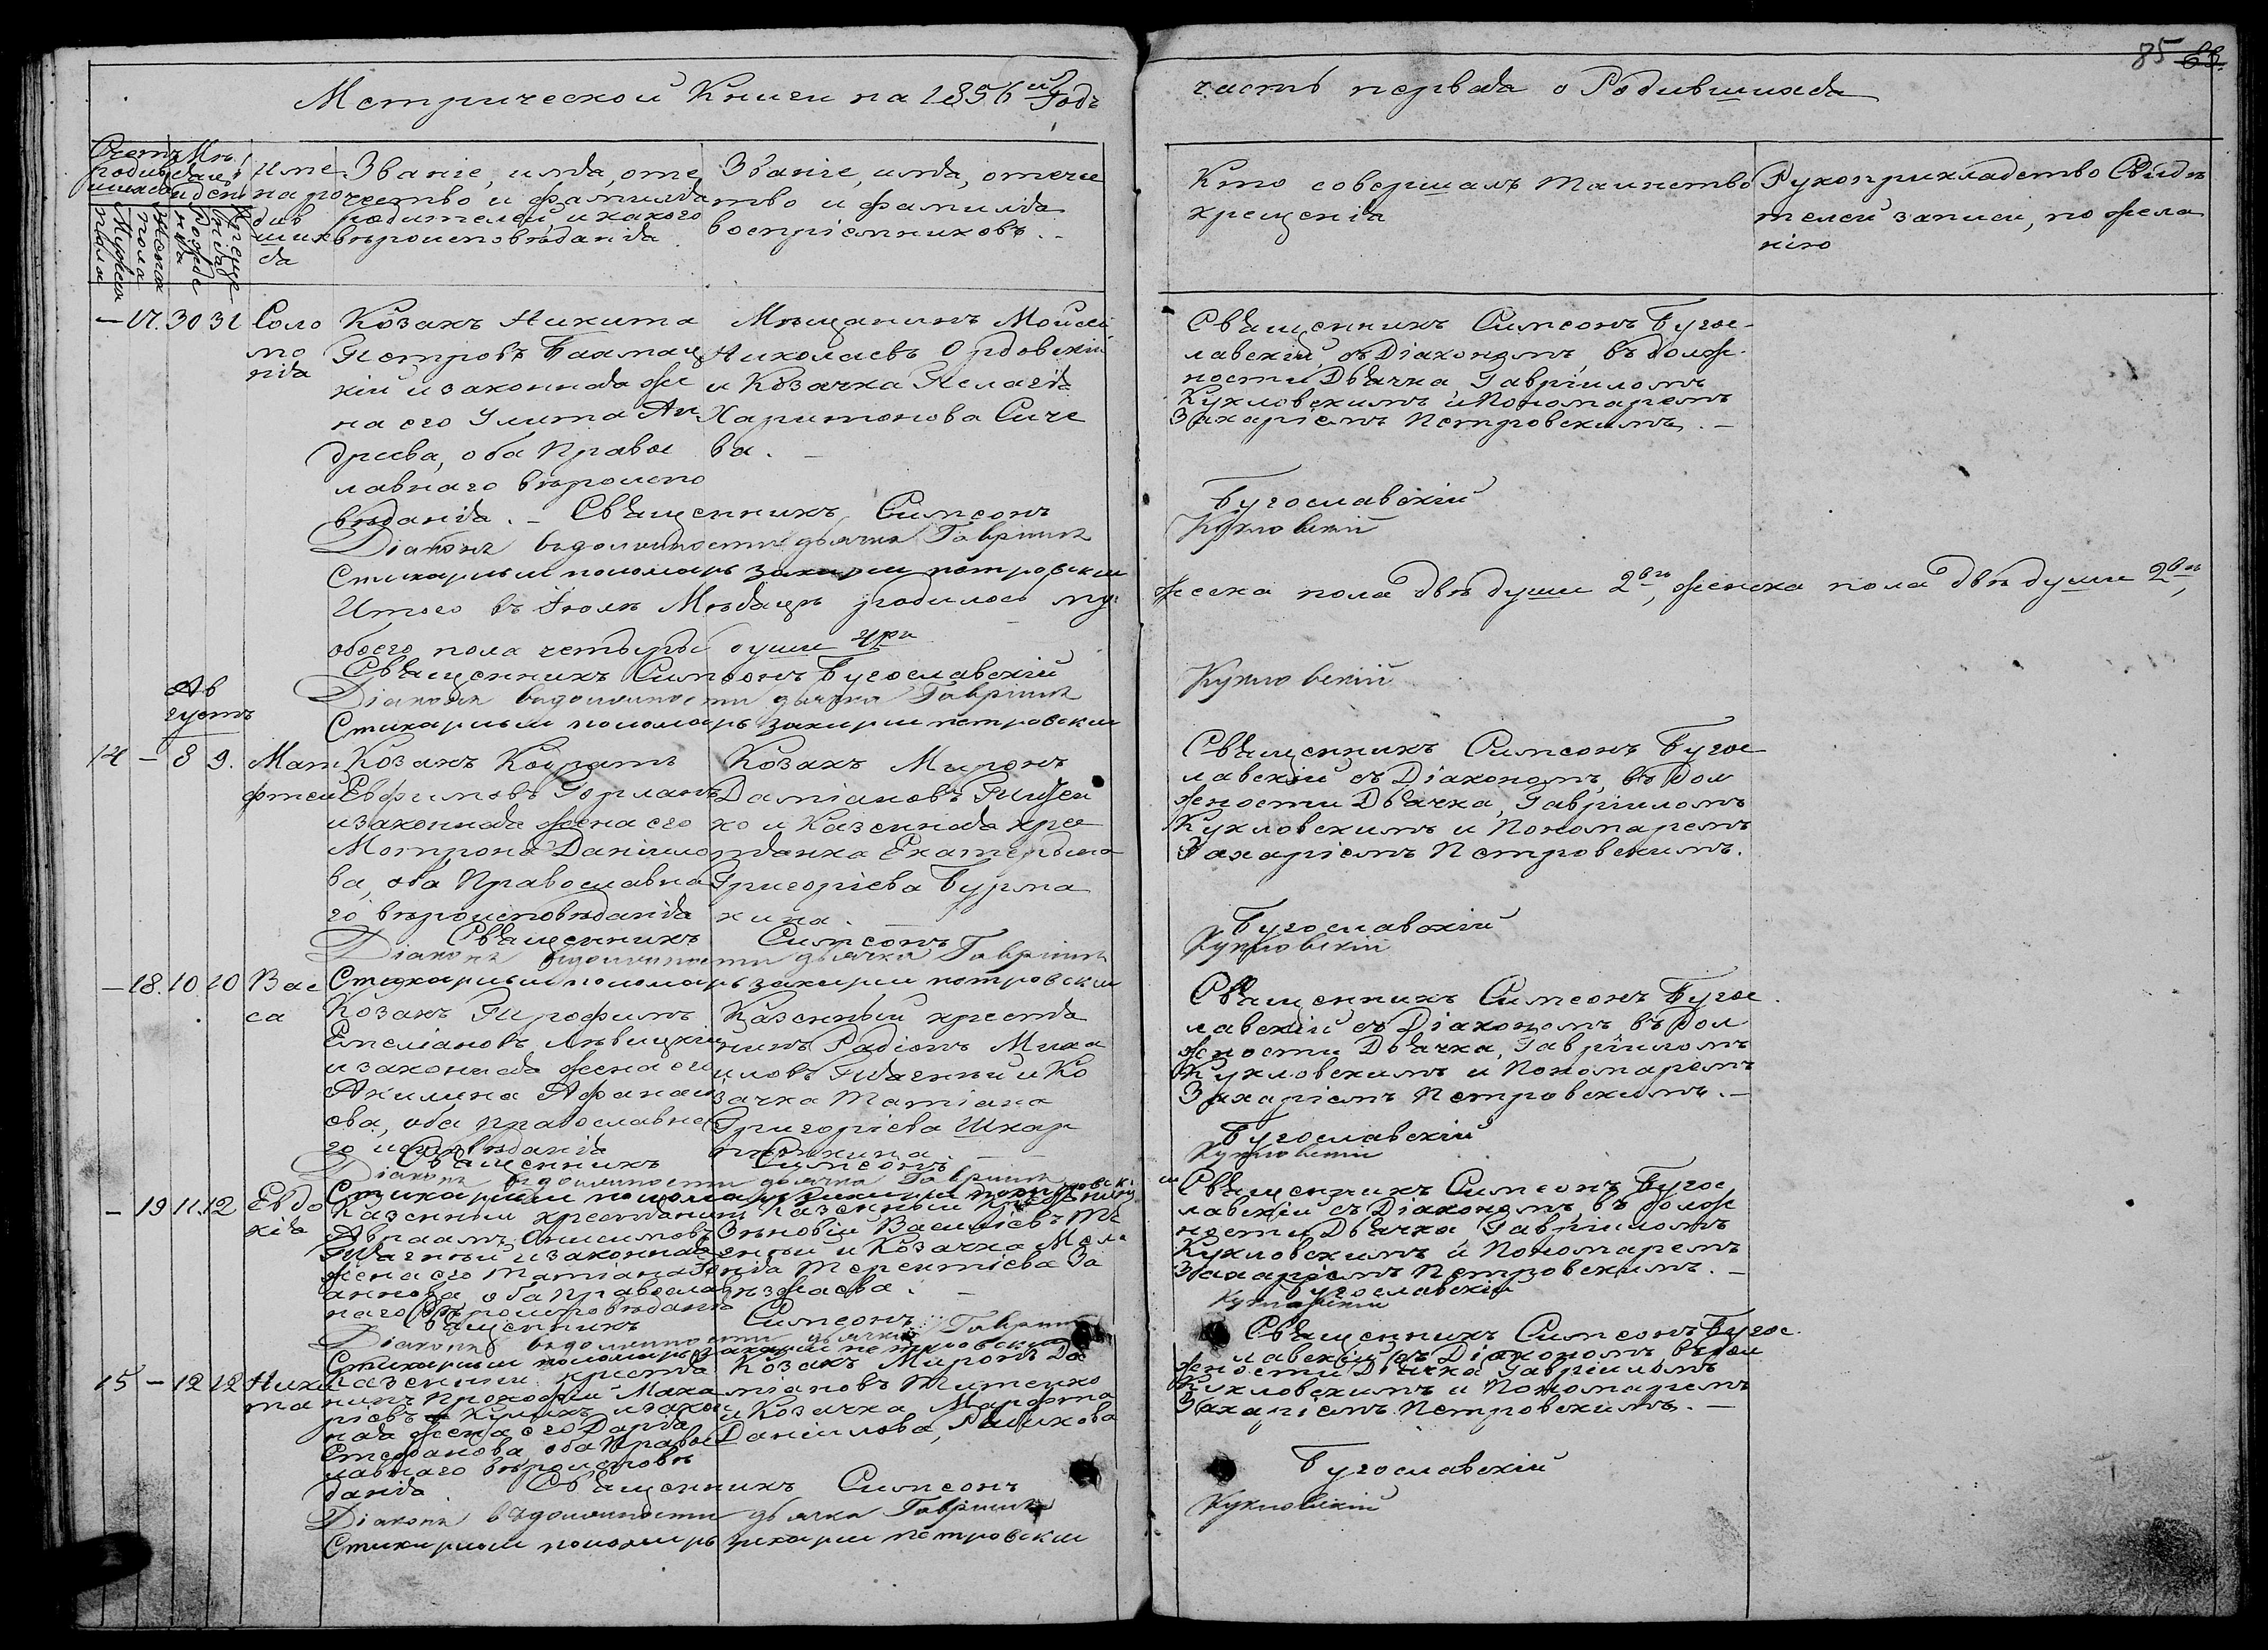 85
Метрической Книги на 1856й Годъ
часть первая о Родившихся
Счетъ родившихся
Мужеска пола
Женска пола
Мѣсяцъ и день
Рожденія
Крещенія
Имена родившихся
Званіе, имя, отечество и фамилія
родителей, и какого
вѣроисповѣданія.
Званіе, имя, отече
тво и фамилія
воспріемниковъ. –
Кто совершалъ таинство
крещенія
Рукоприкладство Свидѣ
телей записи, по жела
нію
– 17. 30 31 Соло
мо
нія
Козакъ Никита
Петровъ
кій и законная же
на его Улита Ан
дреева, оба Правос
лавнаго вѣроиспо
вѣданія. – Священникъ Симеонъ
Мѣщанинъ Моисей
Николаевъ Орловскій
и Козачка Пелагія
Харитонова Сиче
ва. –
Священникъ Симеонъ Бугос-
лавскій, съ Діакономъ, въ долж-
ности Дьячка, Гавріиломъ
Кукловскимъ и Пономаремъ
Захаріемъ Петровскимъ. –
Бугославскій
Кукловскій
Діаконъ въ должности дьячка Гавріилъ
Стихарный пономарь Захарій Петровскій
Итого въ Іюлѣ Мѣсяцѣ родилось му
жеска пола двѣ души 2вѣ, женска пола двѣ души 2вѣ,
обоего пола четыры души 4ри
Священникъ Симеонъ Бугославскій
Діаконъ въ должности дьячка Гавріилъ
Кукловскій
Стихарный пономарь Захарій Петровскій
Ав
густъ
14 – 8 9. Мат
фтей
Козакъ Кодратъ
Евфимовъ Горлачъ
и законная жена его
Мотрона Даніило
ва, оба Православна
го вѣроисповѣданія
Священникъ Симеонъ
Козакъ Миронъ
Даміановъ Тищен
ко и Казенная крес
тянка Екатерина
Григоріева Бурма
кина. –
Священникъ Симеонъ Бугос
лавскій съ Діакономъ, въ дол
жности Дьячка, Гавріиломъ
Кукловскимъ и Пономаремъ
Захаріемъ Петровскимъ.
Бугославскій
Кукловскій
Діаконъ въ должности дьячка Гавріилъ
Стихарный пономарь Захарій Петровскій
– 18. 10. 10 Вас
са
Козакъ Трофимъ
Емеліановъ Лѣвицкій
и законная жена его
Акилина Афанаси
ева, оба православна
го исповѣданія
Священникъ Симеонъ
Казенный крестя
нинъ Радіонъ Миха
иловъ Тягный и Ко
зачка Татіана
Григоріева Шкар
Священникъ Симеонъ Бугос
лавскій съ Діакономъ въ дол
жности Дьячка, Гавріиломъ
Кукловскимъ и Пономаремъ
Захаріемъ Петровскимъ. –
Бугославскій
Кукловскій
Діаконъ въ должности дьячка Гавріилъ
Стихарный пономарь Захарій Петровскій
– 19 11. 12 Евдо
кія
Казенный крестянинъ
Авраамъ Онисимовъ
Тягный и законная
жена его Татіана
Іоаннова, оба правосла
внаго вѣроисповѣданія
Священникъ Симеонъ
Казенный
Зѣновій Василіевъ Тя
гный и Козачка Мела
нія Терентіева
Священникъ Симеонъ Бугос
лавскій съ Діакономъ, въ долж
ности Дьячка Гавріиломъ
Кукловскимъ и Пономаремъ
Захаріемъ Петровскимъ. –
Бугославскій
Кукловскій
Діаконъ въ должности дьячка Гавріилъ
Стихарный пономарь Захарій Петровскій
15 – 12 12 Ники
та
Казенный крестя
нинъ Прокофій Мака
ріевъ Куликъ и закон
ная жена его Дарія
Стефанова, оба Правос
лавнаго вѣроисповѣ
данія Священникъ Симеонъ
Козакъ Миронъ Да
міановъ Тищенко
и Козачка Марфта
Даніилова,
Священникъ Симеонъ Бугос.
лавскій съ Діакономъ въ дол
жности Дьячка Гавріиломъ
Кукловскимъ и Пономаремъ
Захаріемъ Петровскимъ. –
Бугославскій
Кукловскій
Діаконъ въ должности дьячка Гавріилъ
Стихарный пономарь Захарій Петровскій